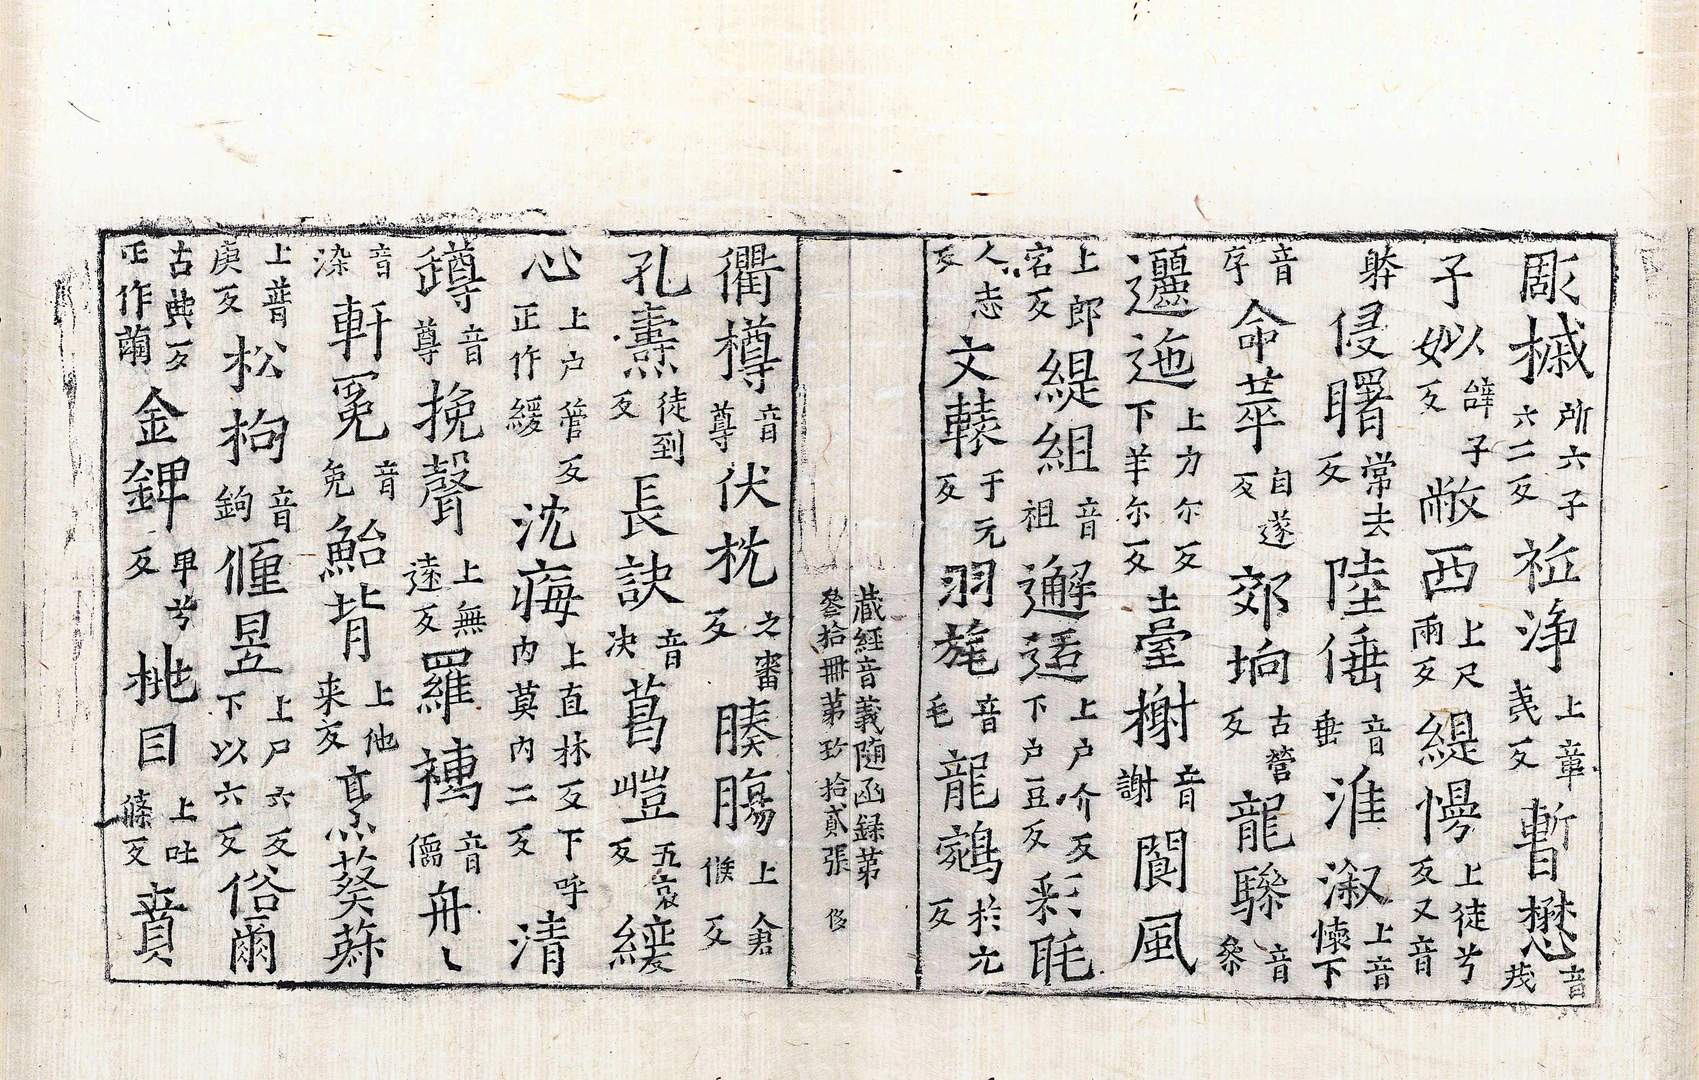 彫槭所六子六二反祉淨上章羙反暫懋音茂
子以辥子如反敞西上尺兩反緹慢上徒兮反又音
骵侵曙常去反陸倕音垂淮淑上音懷下音
序命莘自遂反郊坰古營反龍驂音叅
邐迤上力尔反下羊尔反臺榭音謝閬風
上郎宕反緹組音祖邂逅上户介反下户豆反彩毦
人志反文轅于元反羽旄音毛龍鵷於元反
藏經音義随函録苐
叄拾冊苐玖拾貳張 侈
衢樽音尊伏枕之審反腠腸上倉候反
孔燾徒到反長訣音决葛嵦五哀反緩
心上户管反正作緩沈痗上直林反下呼內莫內二反清
蹲音尊挽聲上無遠反羅襦音儒舟〻
音染軒冕音免鮐背上他来反京蔡蔡
上普庚反松枸音鉤偓昱上尸六反下以六反俗爾
古典反正作繭金鎞甲兮反桃目上吐篠反賁